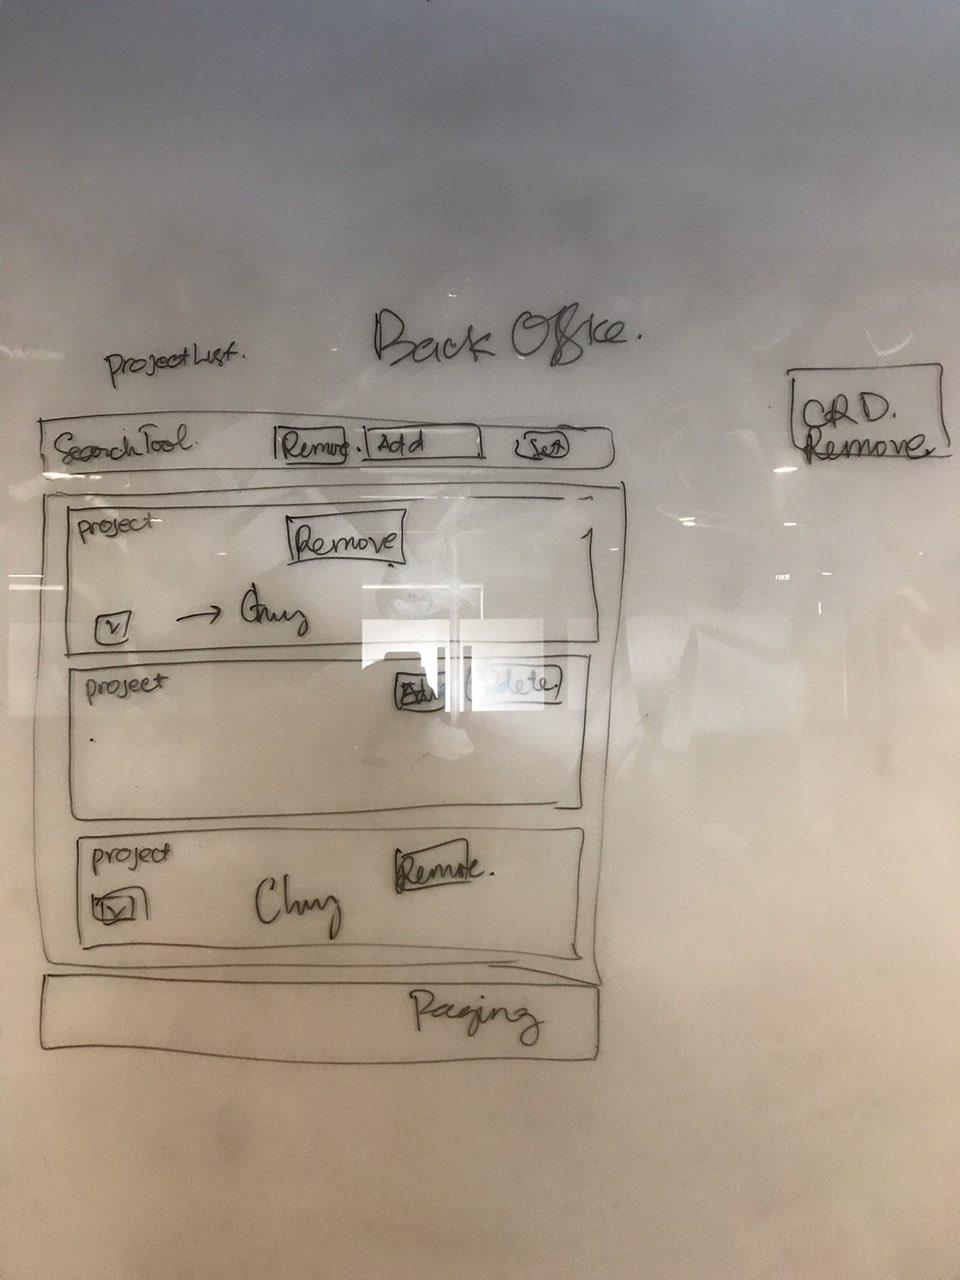 Back Office.
Project List.
CRD.
Remove.
Search Tool. Remove. Add Set
project
Remove
project
project
Remove.
Paging